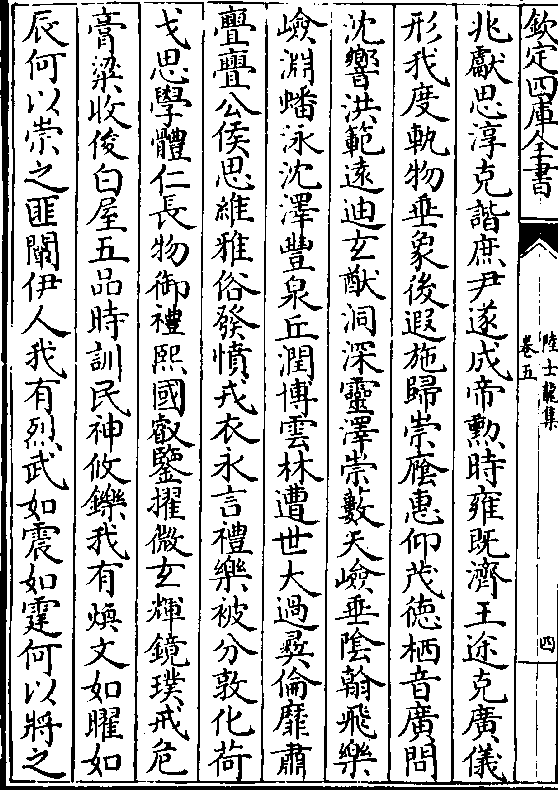 欽定四庫全書
陸士龍集
卷五
四
兆獻思淳克諧庶尹遂成帝勲時雍既濟王途克廣儀
形我度軌物垂象後遐施歸崇廕惠仰茂徳栖音廣問
沈響洪範逺迪玄猷洞深靈澤崇藪天嶮垂陰翰飛樂
嶮淵蟠泳沈澤豐泉丘潤博雲林遭世大過彛倫靡肅
亹亹公侯思維雅俗發憤戎衣永言禮樂被分敦化荷
戈思學體仁長物御禮熙國叡鑒擢微玄輝鏡璞戒危
膏粱收俊白屋五品時訓民神攸鑠我有煥文如曜如
辰何以崇之匪闡伊人我有烈武如震如霆何以將之